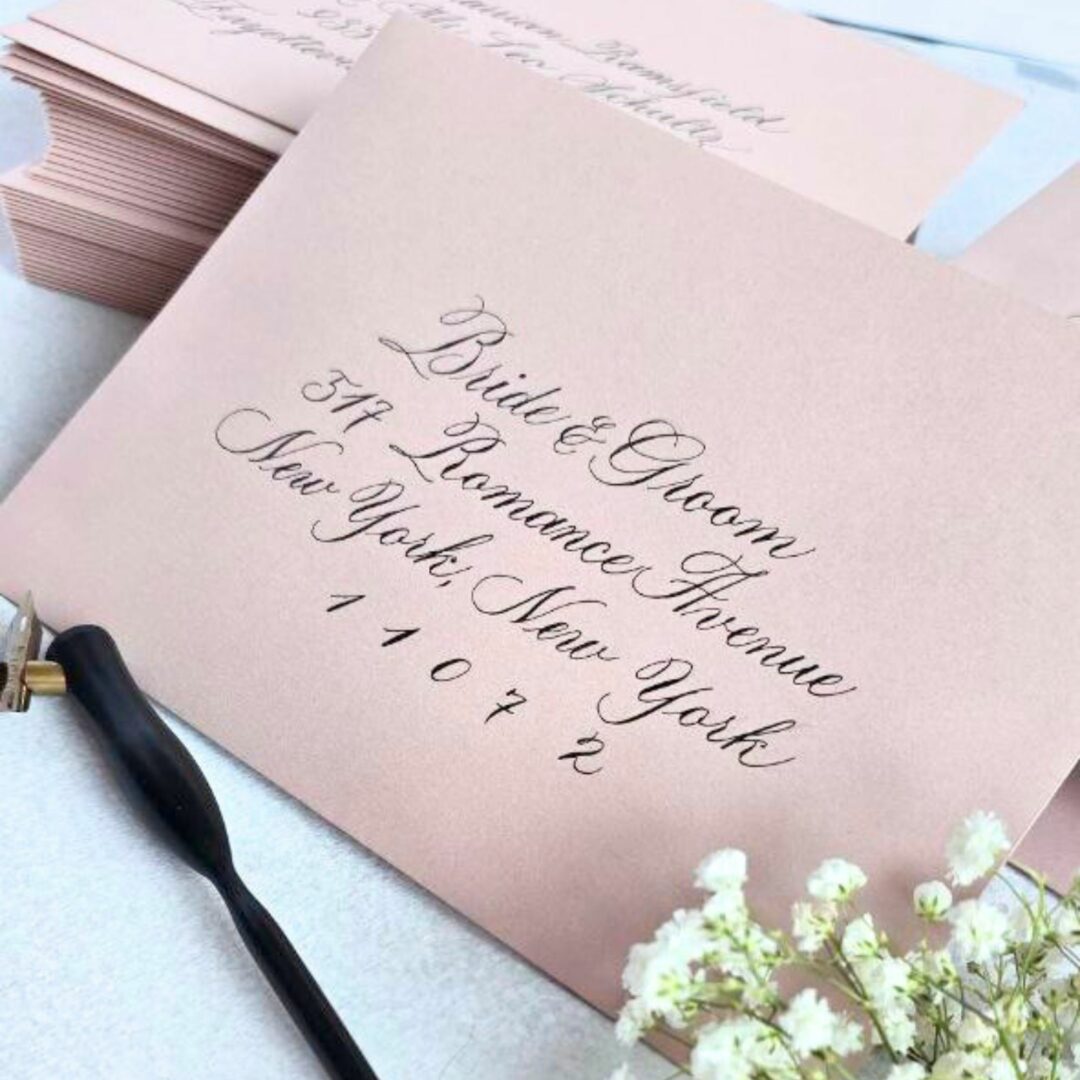 Ramsfield
Bride & Groom
517 Romance Avenue
New York, New York
1 1 0 7 2